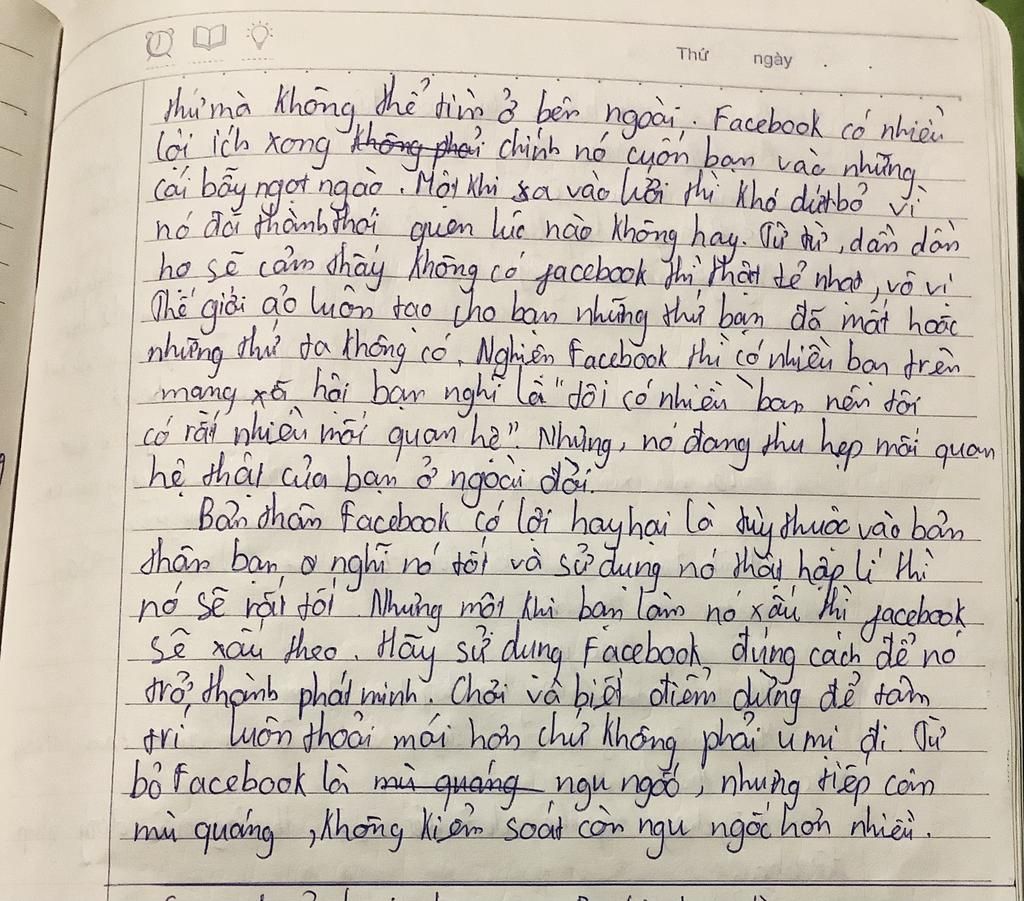 Thứ ngày . .
thứ mà không thể tìm ở bên ngoài. Facebook có nhiều
lợi ích xong không phải chính nó cuốn bạn vào những
cái bẫy ngọt ngào. Một khi sa vào lưới thì khó dứt bỏ vì
nó đã thành thói quen lúc nào không hay. Từ từ, dần dần
họ sẽ cảm thấy không có facebook thì thật tẻ nhạt, vô vị
Thế giới ảo luôn tạo cho bạn những thứ bạn đã mất hoặc
những thứ ta không có. Nghiện Facebook thì có nhiều bạn trên
mạng xã hội bạn nghĩ là "tôi có nhiều bạn nên tôi
có rất nhiều mối quan hệ". Nhưng, nó đang thu hẹp mối quan
hệ thật của bạn ở ngoài đời.
Bản thân Facebook có lợi hay hại là tùy thuộc vào bản
thân bạn nghĩ nó tốt và sử dụng nó thật hợp lí thì
nó sẽ rất tốt Nhưng một khi bạn làm nó xấu thì facebook
sẽ xấu theo. Hãy sử dụng Facebook đúng cách để nó
trở thành phát minh. Chơi và biết điểm dừng để tâm
trí luôn thoải mái hơn chứ không phải u mi đi. Từ
bỏ Facebook là mù quáng ngu ngốc, nhưng tiếp cận
mù quáng, không kiểm soát còn ngu ngốc hơn nhiều.